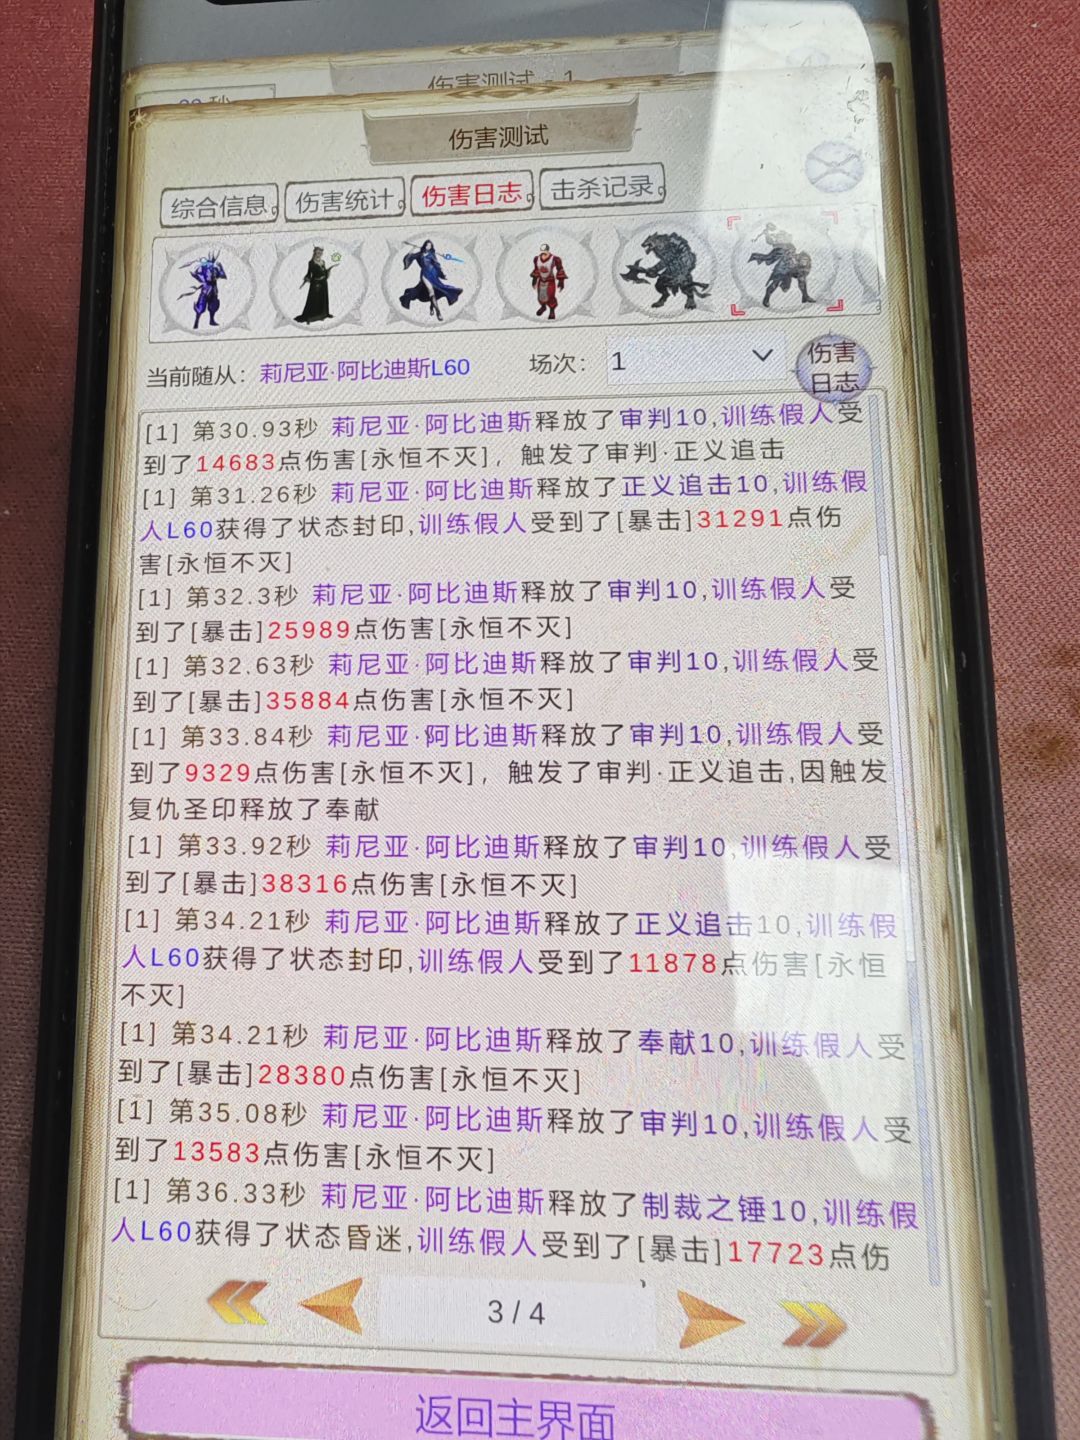 伤害测试 - 1
伤害测试
综合信息。
伤害统计。
伤害日志。
击杀记录。
当前随从：莉尼亚·阿比迪斯L60
场次：
1
伤害
日志
[1] 第30.93秒 莉尼亚·阿比迪斯释放了审判10,训练假人受
到了14683点伤害[永恒不灭]，触发了审判·正义追击
[1] 第31.26秒 莉尼亚·阿比迪斯释放了正义追击10,训练假
人L60获得了状态封印,训练假人受到了[暴击]31291点伤
害[永恒不灭]
[1] 第32.3秒 莉尼亚·阿比迪斯释放了审判10,训练假人受
到了[暴击]25989点伤害[永恒不灭]
[1] 第32.63秒 莉尼亚·阿比迪斯释放了审判10,训练假人受
到了[暴击]35884点伤害[永恒不灭]
[1] 第33.84秒 莉尼亚·阿比迪斯释放了审判10,训练假人受
到了9329点伤害[永恒不灭]，触发了审判·正义追击,因触发
复仇圣印释放了奉献
[1] 第33.92秒 莉尼亚·阿比迪斯释放了审判10,训练假人受
到了[暴击]38316点伤害[永恒不灭]
[1] 第34.21秒 莉尼亚·阿比迪斯释放了正义追击10,训练假
人L60获得了状态封印,训练假人受到了11878点伤害[永恒
不灭]
[1] 第34.21秒 莉尼亚·阿比迪斯释放了奉献10,训练假人受
到了[暴击]28380点伤害[永恒不灭]
[1] 第35.08秒 莉尼亚·阿比迪斯释放了审判10,训练假人受
到了13583点伤害[永恒不灭]
[1] 第36.33秒 莉尼亚·阿比迪斯释放了制裁之锤10,训练假
人L60获得了状态昏迷,训练假人受到了[暴击]17723点伤
3 / 4
返回主界面